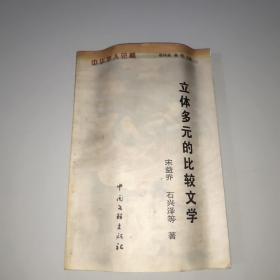 中华学人论稿
立体多元的比较文学
宋益乔 石兴泽等 著
中国文联出版社